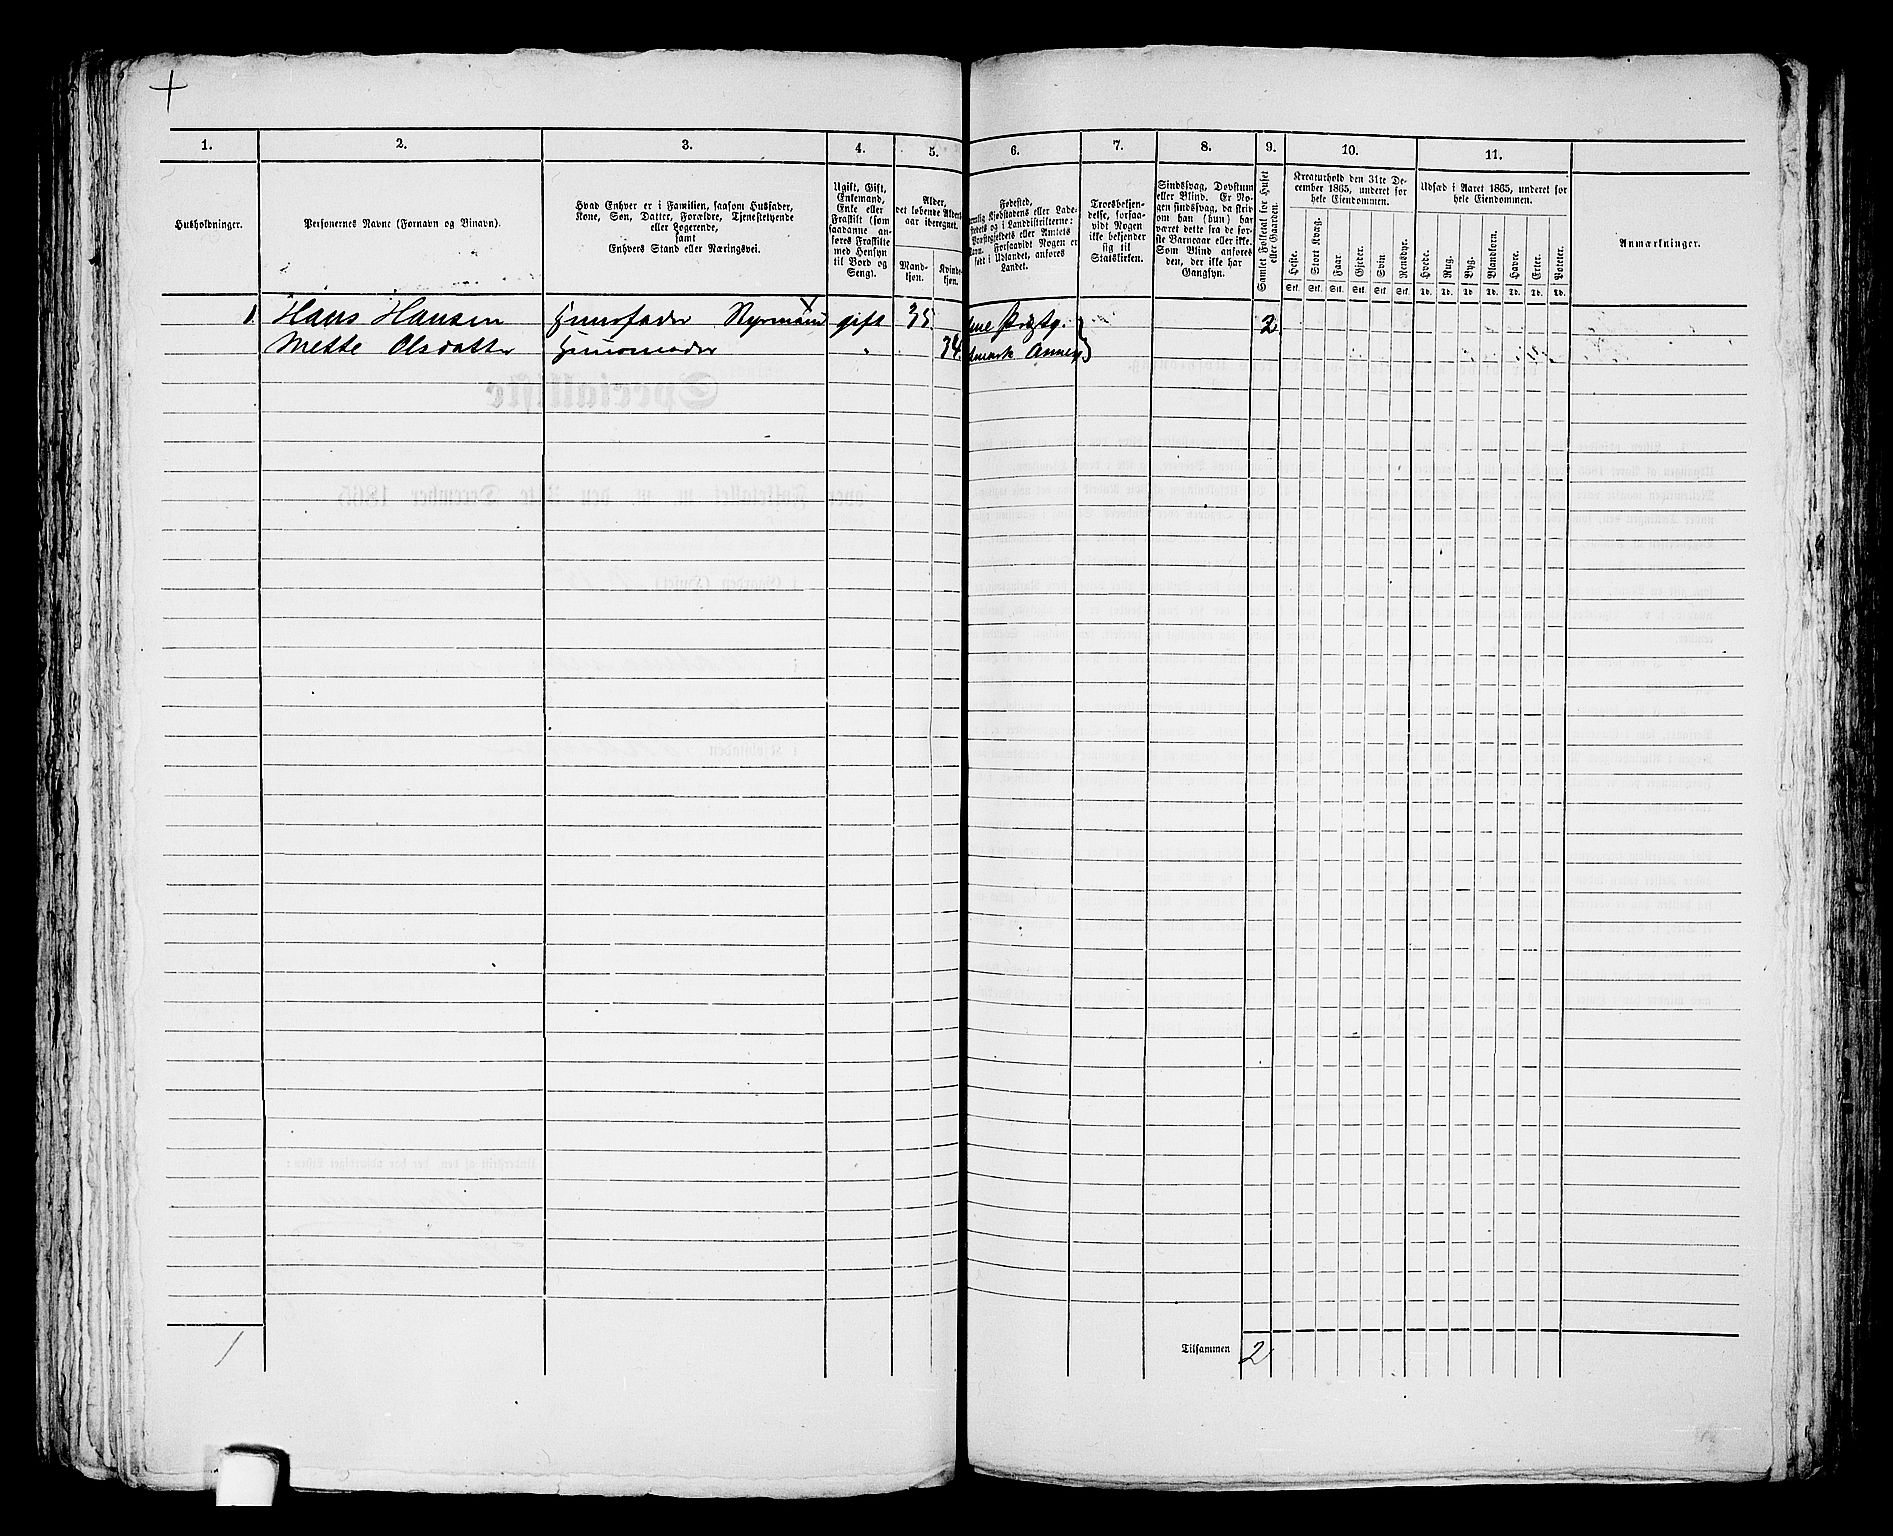 1. 2. 3. 4. 5. 6. 7. 8. 9. 10. 11.
Husholdninger.
Personernes Navne (Fornavn og Binavn).
Hvad Enhver er i Familien, saasom Husfader,
Kone, Søn, Datter, Forældre, Tjenestetyende
eller Logerende,
samt
Enhvers Stand eller Næringsvei.
Ugift, Gift,
Enkemand,
Enke eller
Fraskilt (som
saadanne an-
føres Fraskilte
med Hensyn
til Bord og
Seng).
Alder,
det løbende Alders-
aar iberegnet.
Mand-
kjøn.
Kvinde-
kjøn.
Fødested,
Kjøbstadens eller Lade-
stedets og i Landdistrikterne:
Præstegjeldets eller Amtets
Navn. Forsaavidt Nogen er
født i Udlandet, anføres
Landet.
Troesbekjen-
delse, forsaa-
vidt Nogen
ikke bekjender
sig til
Statskirken.
Sindssvag, Døvstum
eller Blind. Er No-
gen sindssvag, da skriv
om han (hun) har
været dette fra de før-
ste Barneaar eller ikke.
Som Blind anføres
den, der ikke har
Gangsyn.
Samlet Folketal for Huset
eller Gaarden.
Kreaturhold den 31te De-
cember 1865, underet for
hele Eiendommen.
Heste. Stort Kvæg. Faar Gjeder. Svin Rensdyr.
Stk. Stk. Stk. Stk. Stk. Stk.
Udsæd i Aaret 1865, underet for
hele Eiendommen.
Hvede. Rug. Byg. Blandkorn. Havre. Erter. Poteter.
Td. Td. Td. Td. Td. Td. Td.
Anmærkninger.
1. Hans Hansen Huusfader Styrmand gift 35 2
Mette Olsdatter Huusmoder " 34
1
Tilsammen 2